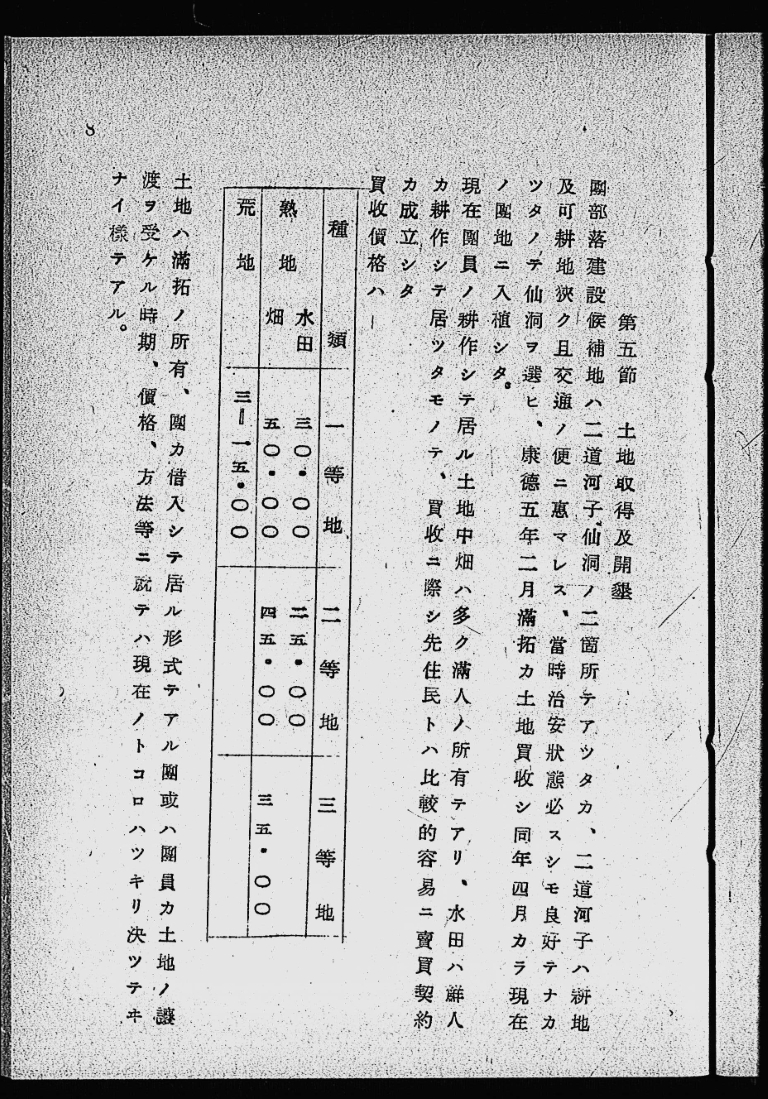 第五節 土地取得及開墾
團部落建設候補地ハ二道河子、仙洞ノ二箇所テアツタカ、二道河子ハ耕地
及可耕地狹ク且交通ノ便ニ惠マレス、當時治安狀態必スシモ良好テナカ
ツタノテ仙洞ヲ選ヒ、康德五年二月滿拓カ土地買收シ同年四月カラ現在
ノ團地ニ入植シタ。
現在團員ノ耕作シテ居ル土地中畑ハ多ク滿人ノ所有テアリ、水田ハ鮮人
カ耕作シテ居ツタモノテ、買收ニ際シ先住民トハ比較的容易ニ賣買契約
カ成立シタ
買收價格ハ
種類 一等地 二等地 三等地
熟地 水田 三〇・〇〇 二五・〇〇
畑 五〇・〇〇 四五・〇〇 三五・〇〇
荒地 三―一五・〇〇
土地ハ滿拓ノ所有、團カ借入シテ居ル形式テアル團或ハ團員カ土地ノ讓
渡ヲ受ケル時期、價格、方法等ニ就テハ現在ノトコロハツキリ決ツテヰ
ナイ樣テアル。
8